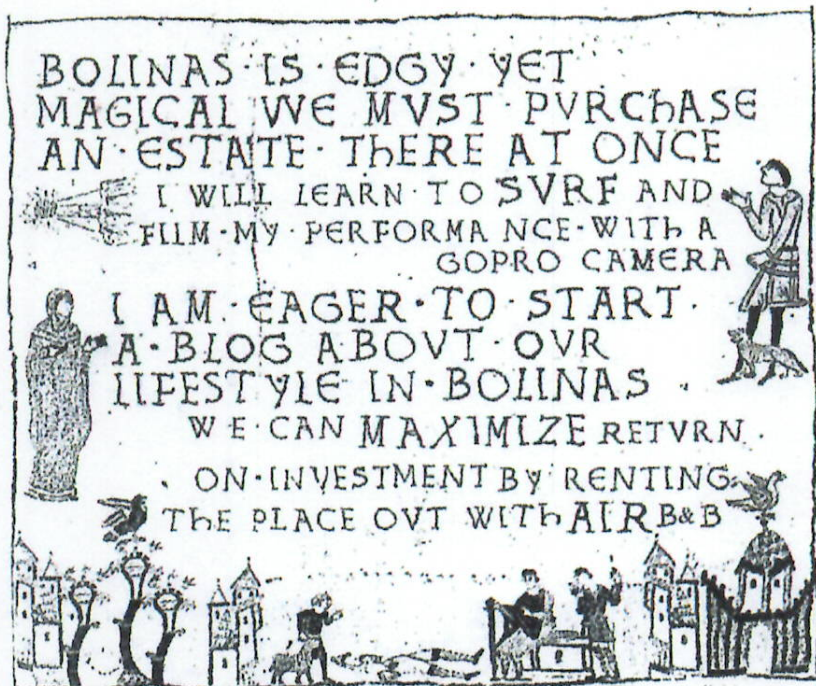 BOLINAS·IS·EDGY·YET
MAGICAL WE MVST·PVRChASE
AN·ESTATE·ThERE AT ONCE
I WILL LEARN·TO SVRF AND
FILM·MY·PERFORMANCE·WITh A
GOPRO CAMERA
I AM·EAGER·TO·START·
A·BLOG ABOVT·OVR
LIFESTYLE IN·BOLINAS
WE·CAN MAXIMIZE RETVRN·
ON·INVESTMENT BY RENTING
ThE PLACE OVT WITh AIRB&B